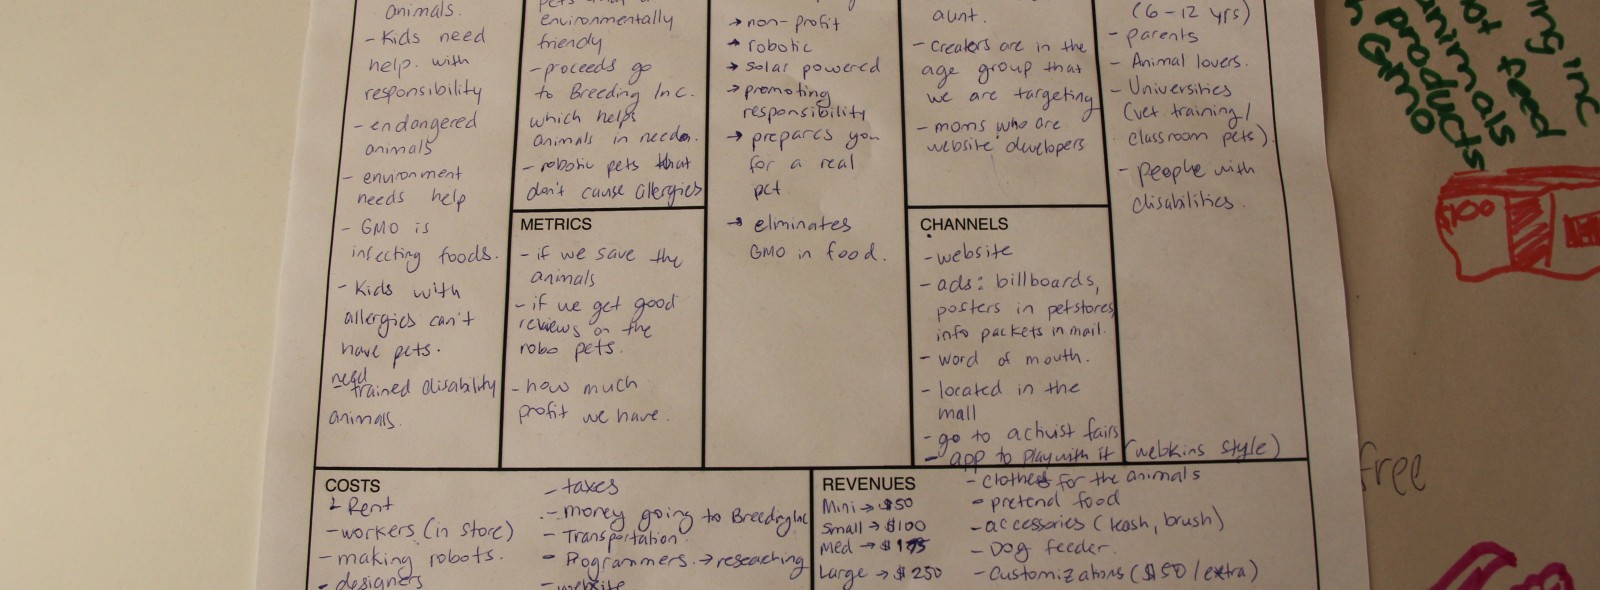 animals.
- Kids need
help. with
responsibility
- endangered
animals
- environment
needs help
- GMO is
infecting foods.
- Kids with
allergies can't
have pets.
need
trained disability
animals.
environmentally
friendly
- proceeds go
to Breeding Inc.
which helps
animals in need.
- robotic pets that
don't cause allergies
METRICS
- if we save the
animals
- if we get good
reviews on the
robo pets.
- how much
profit we have.
→ non-profit
→ robotic
→ solar powered
→ promoting
responsibility
→ prepares you
for a real
pet
→ elminates
GMO in food.
aunt.
- creators are in the
age group that
we are targeting
- moms who are
website developers
CHANNELS
- website
- ads: billboards,
posters in petstores,
info packets in mail.
- word of mouth.
- located in the
mall
- go to activist fairs
- app to play with it (webkins style)
(6-12 yrs)
- parents
- Animal lovers.
- Universities
(vet training/
classroom pets)
- people with
disabilities.
COSTS
- Rent
- workers (in store)
- making robots.
- designers
- taxes
- money going to Breeding Inc
- Transportation.
- Programmers. → reseaching
- website
REVENUES
Mini → $50
Small → $100
Med → $175
Large → $250
- clothes for the animals
- pretend food
- accessories (leash, brush)
- Dog feeder.
- Customizations ($50/extra)
ing inc
animals
not feed
animals
products
GMO
free